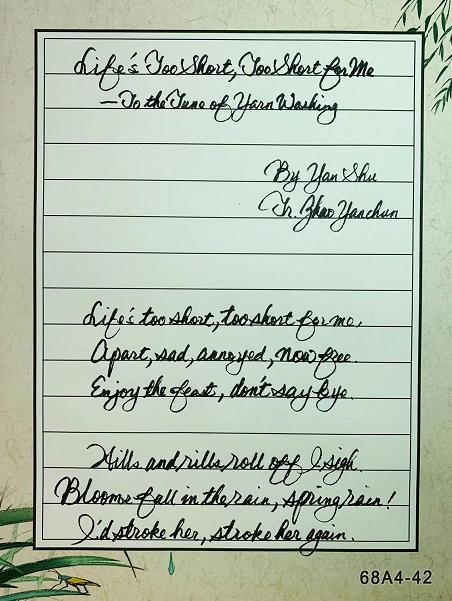 Life's Too Short, Too Short for Me
—To the Tune of Yarn Washing
By Yan Shu
Tr. Zhao Yanchun
Life's too short, too short for me,
Apart, sad, annoyed, now free.
Enjoy the feast, don't say bye.
Hills and rills roll off I sigh.
Blooms fall in the rain, spring rain!
I'd stroke her, stroke her again.
68A4-42